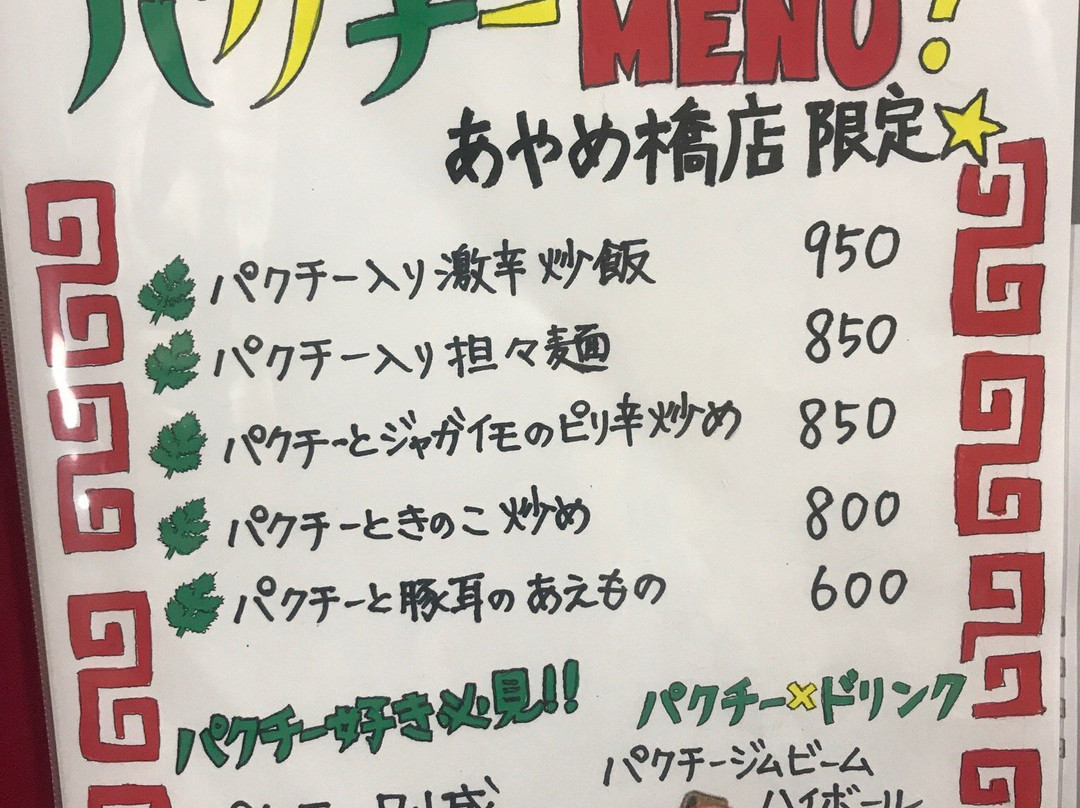 パクチーMENU!
あやめ橋店 限定
パクチー入り激辛炒飯 950
パクチー入り担々麺 850
パクチーとジャガイモのピリ辛炒め 850
パクチーときのこ炒め 800
パクチーと豚耳のあえもの 600
パクチー好き必見!!
パクチー×ドリンク
パクチージムビーム
ハイボール